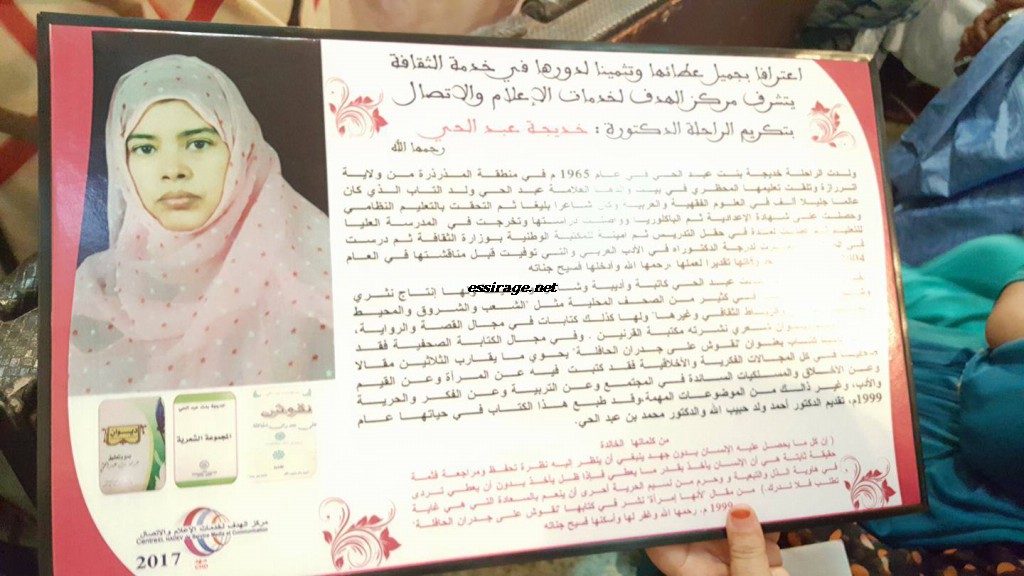 اعترافا بجميل عطائها وتثمينا لدورها في خدمة الثقافة
يتشرف مركز الهدف لخدمات الإعلام والاتصال
بتكريم الراحلة الدكتورة : خديجة عبد الحي
رحمها الله
ولدت الراحلة خديجة بنت عبد الحي في عام 1965 م في منطقة المذرذرة من ولاية
الترارزة وتلقت تعليمها المحظري في بيت والدها العلامة عبد الحي ولد التاب الذي كان
عالما جليلا ألف في العلوم الفقهية والعربية وكان شاعرا بليغا ثم التحقت بالتعليم النظامي
وحصلت على شهادة الاعدادية ثم الباكلوريا وواصلت دراستها وتخرجت في المدرسة العليا
للتعليم لمدة في حقل التدريس ثم امينة للمكتبة الوطنية بوزارة الثقافة ثم درست
لدرجة الدكتوراه في الأدب العربي والتي توفيت قبل مناقشتها في العام
2004 تقديرا لعملها رحمها الله وأدخلها فسيح جناته
عبد الحي كاتبة وأديبة ولها إنتاج نثري
في كثير من الصحف المحلية مثل "الشعب والشروق والمحيط
ثقافي وغيرها" ولها كذلك كتابات في مجال القصة والرواية،
شعري نشرته مكتبة القرنين . وفي مجال الكتابة الصحفية فقد
كتاب بعنوان "نقوش على جدران الحافلة" يحوي ما يقارب الثلاثين مقالا
في كل المجالات الفكرية والأخلاقية فقد كتبت فيه عن المرأة وعن القيم
وعن الاخلاق والمسلكيات السائدة في المجتمع وعن التربية وعن الفكر والحرية
والأدب، وغير ذالك من الموضوعات المهمة،وقد طبع هذا الكتاب في حياتها عام
1999م، تقديم الدكتور أحمد ولد حبيب الله والدكتور محمد بن عبد الحي.
من كلماتها الخالدة
( إن كل ما يحصل عليه الإنسان بدون جهد ينبغي أن ينظر إليه نظرة تحفظ ومراجعة فثمة
حقيقة ثابتة هي أن الإنسان يأخذ بقدر ما يعطي فإذا ظل يأخذ بدون أن يعطي تردى
في هاوية الذل والتبعية وحرم من نسيم الحرية أحرى أن ينعم بالسعادة التي هي غاية
تطلب فلا تدرك ) من مقال لأنها إمرأة نشر في كتابها "نقوش على جدران الحافلة"
1999 م. رحمها الله وغفر لها وأسكنها فسيح جناته
essirage.net
ديوان
خديجة بنت عبد الحي
المجموعة الشعرية
نقوش
على جدران الحافلة
مركز الهدف لخدمات الإعلام والاتصال
2017